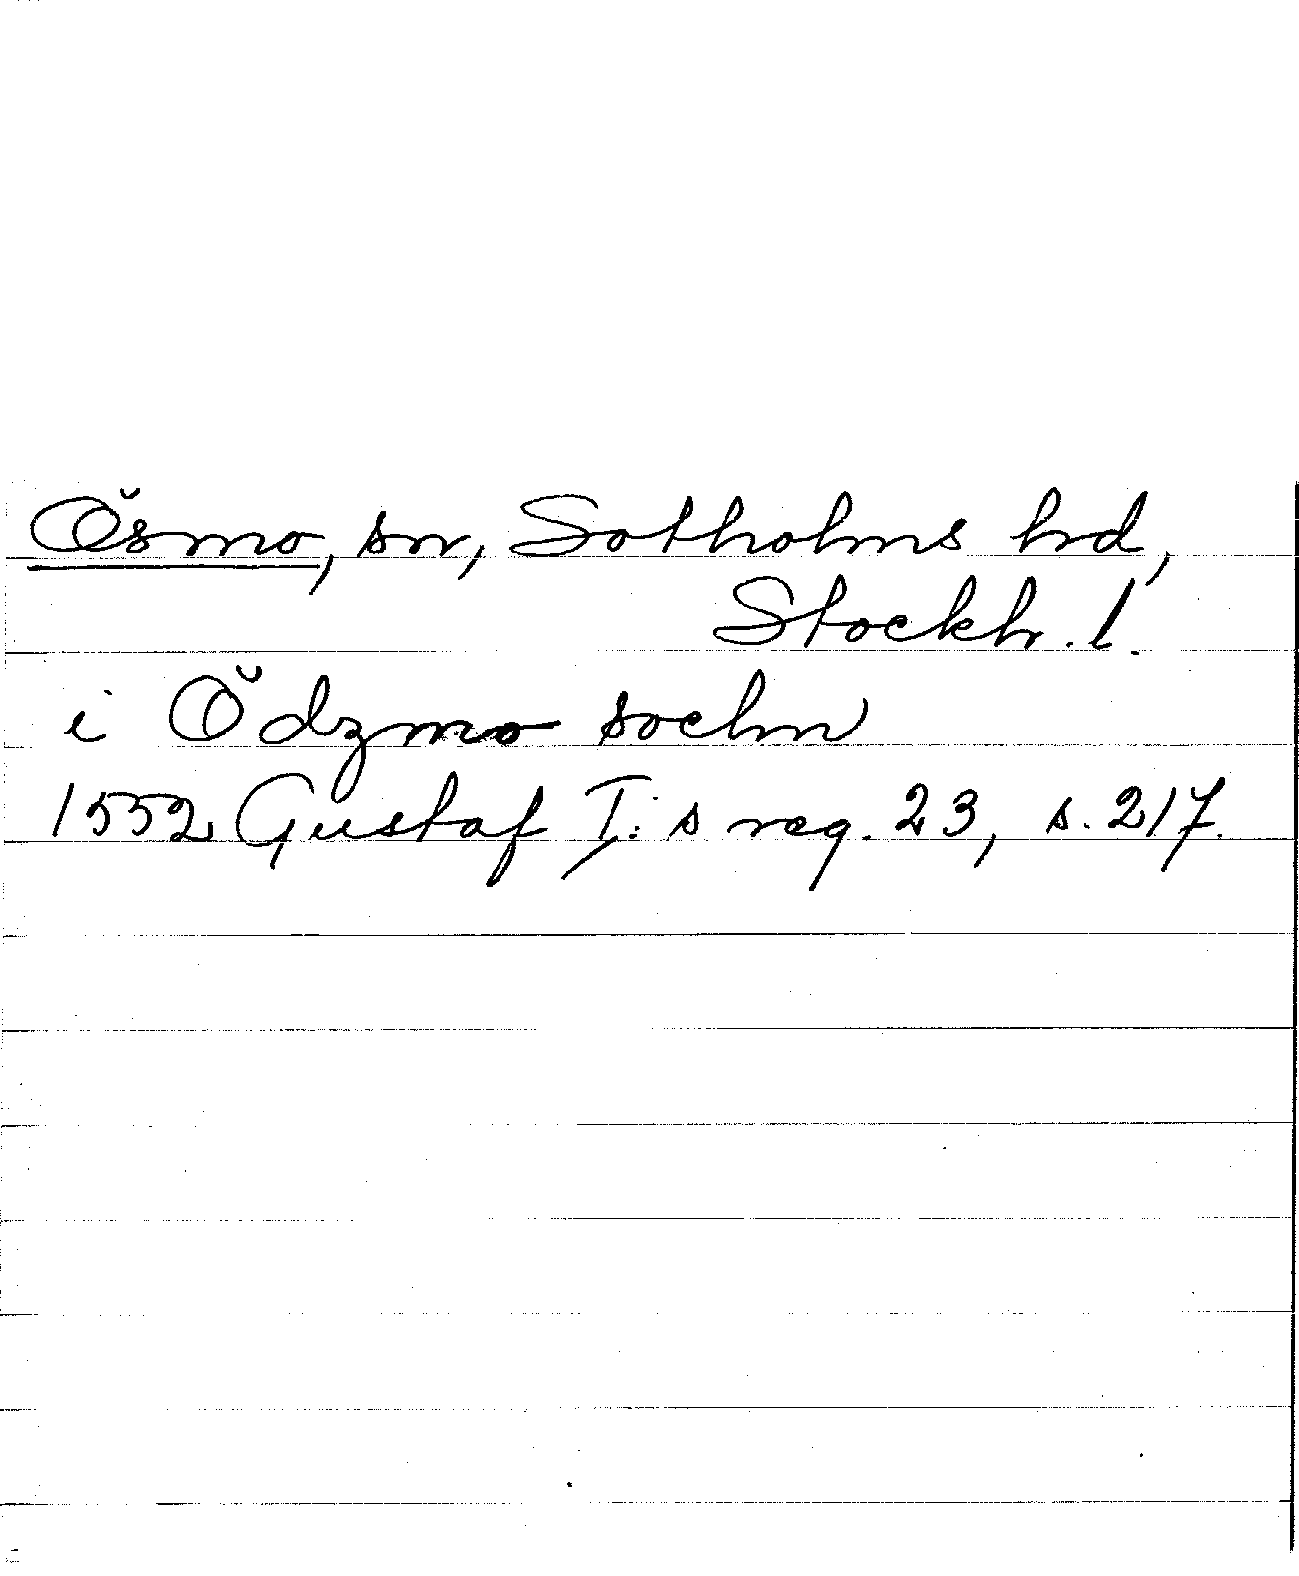 Ösmo, sn, Sotholms hrd,
Stockh. l.
i Ödzmo sochn
1552 Gustaf I:s reg. 23, s. 217.